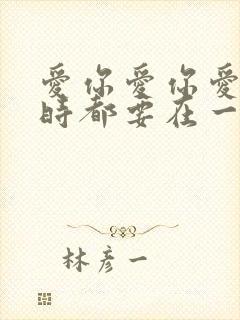 愛你愛你愛
時都要在一
林彥一